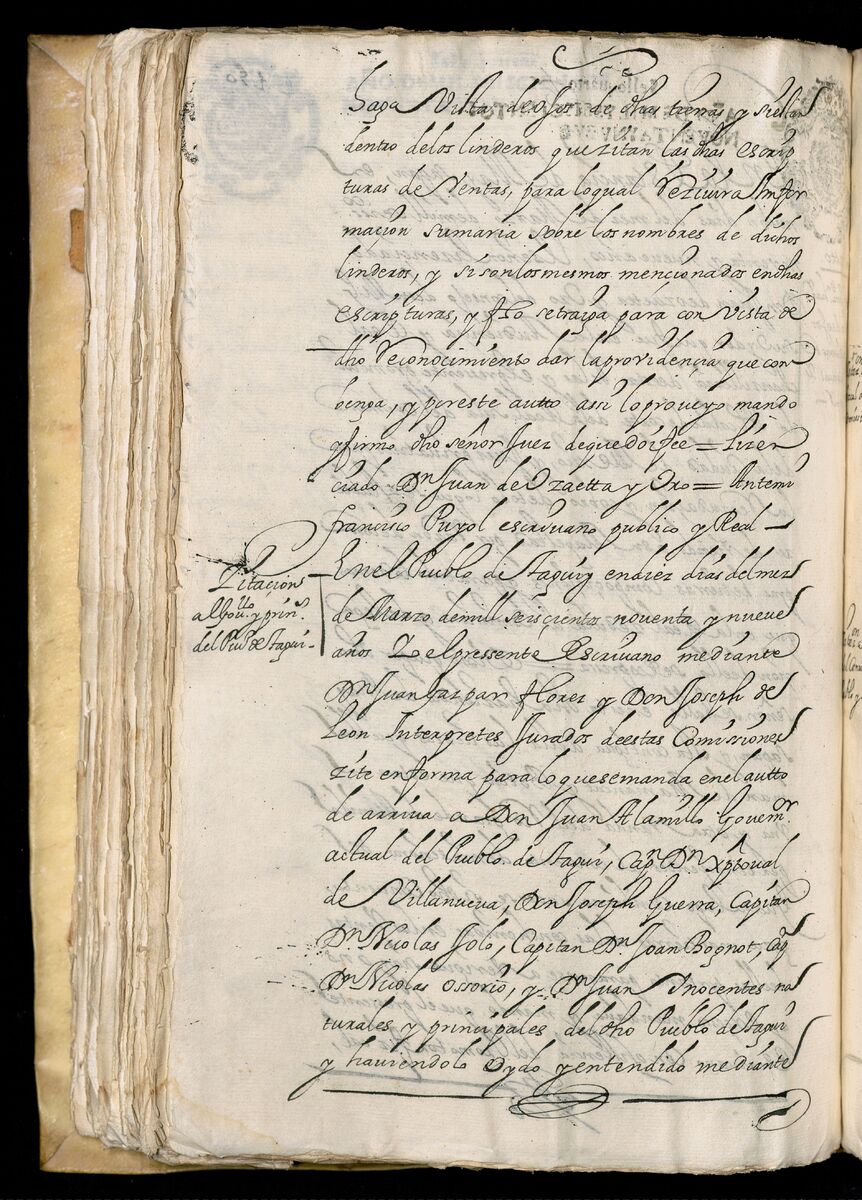 haga Vista de ojos de dhas tierras y si estan
dentro delos linderos que zitan las dhas escrip
turas de Ventas, para loqual Rezivira Imfor
macion sumaria sobre los nombres de dichos
linderos, y si son los mesmos mencionados en dhas
escripturas, y fho se traiga para con vista de
dho Reconocimiento dar la providencia que con
benga, y por este autto assi lo proveyo mando
y firmo dho señor Juez de que doi fee = Lizen
ciado Dn Juan de Ozaetta y Oro = Antemi
francisco Puyol escrivano publico y Real
Zitacions
al Gov.or y prin.s
del Pueo de Taguí
En el Pueblo de Taguiy en diez dias del mes
de Marzo de mill seiscientos noventa y nueve
años Yo el pressente Escrivano mediante
Dn Juan Gaspar florez y Don Joseph de
Leon Interpretes Jurados de estas Comissiones
zite en forma para lo que se manda en el autto
de arriva a Don Juan Alamillo Govern.or
actual del Pueblo de Tagui, Capn Dn Xptoval
de Villanueva, Don Joseph Guerra, Capitan
Dn Nicolas Solo, Capitan Dn Joan Bognot, Capn
Dn Nicolas Ossorio, y Dn Juan Inocentes na
turales y principales del dho Pueblo de Tagui
y haviendolo Oydo y entendido mediante